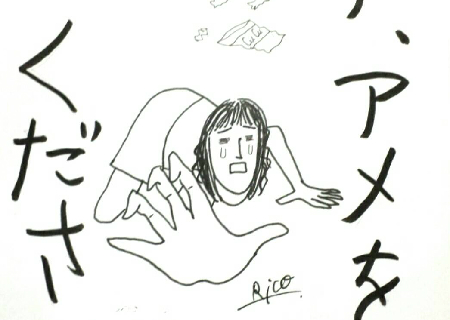 、アメを
くださ
Rico